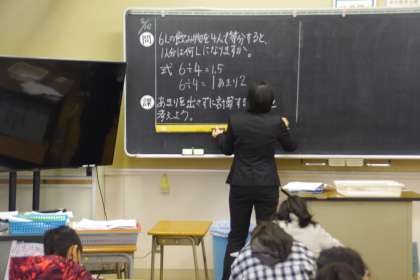 問 6Lの飲み物を4人で等分すると、
1人分は何Lになりますか。
式 6÷4=1.5
6÷4=1あまり2
課 あまりを出さずに計算する
考えよう。